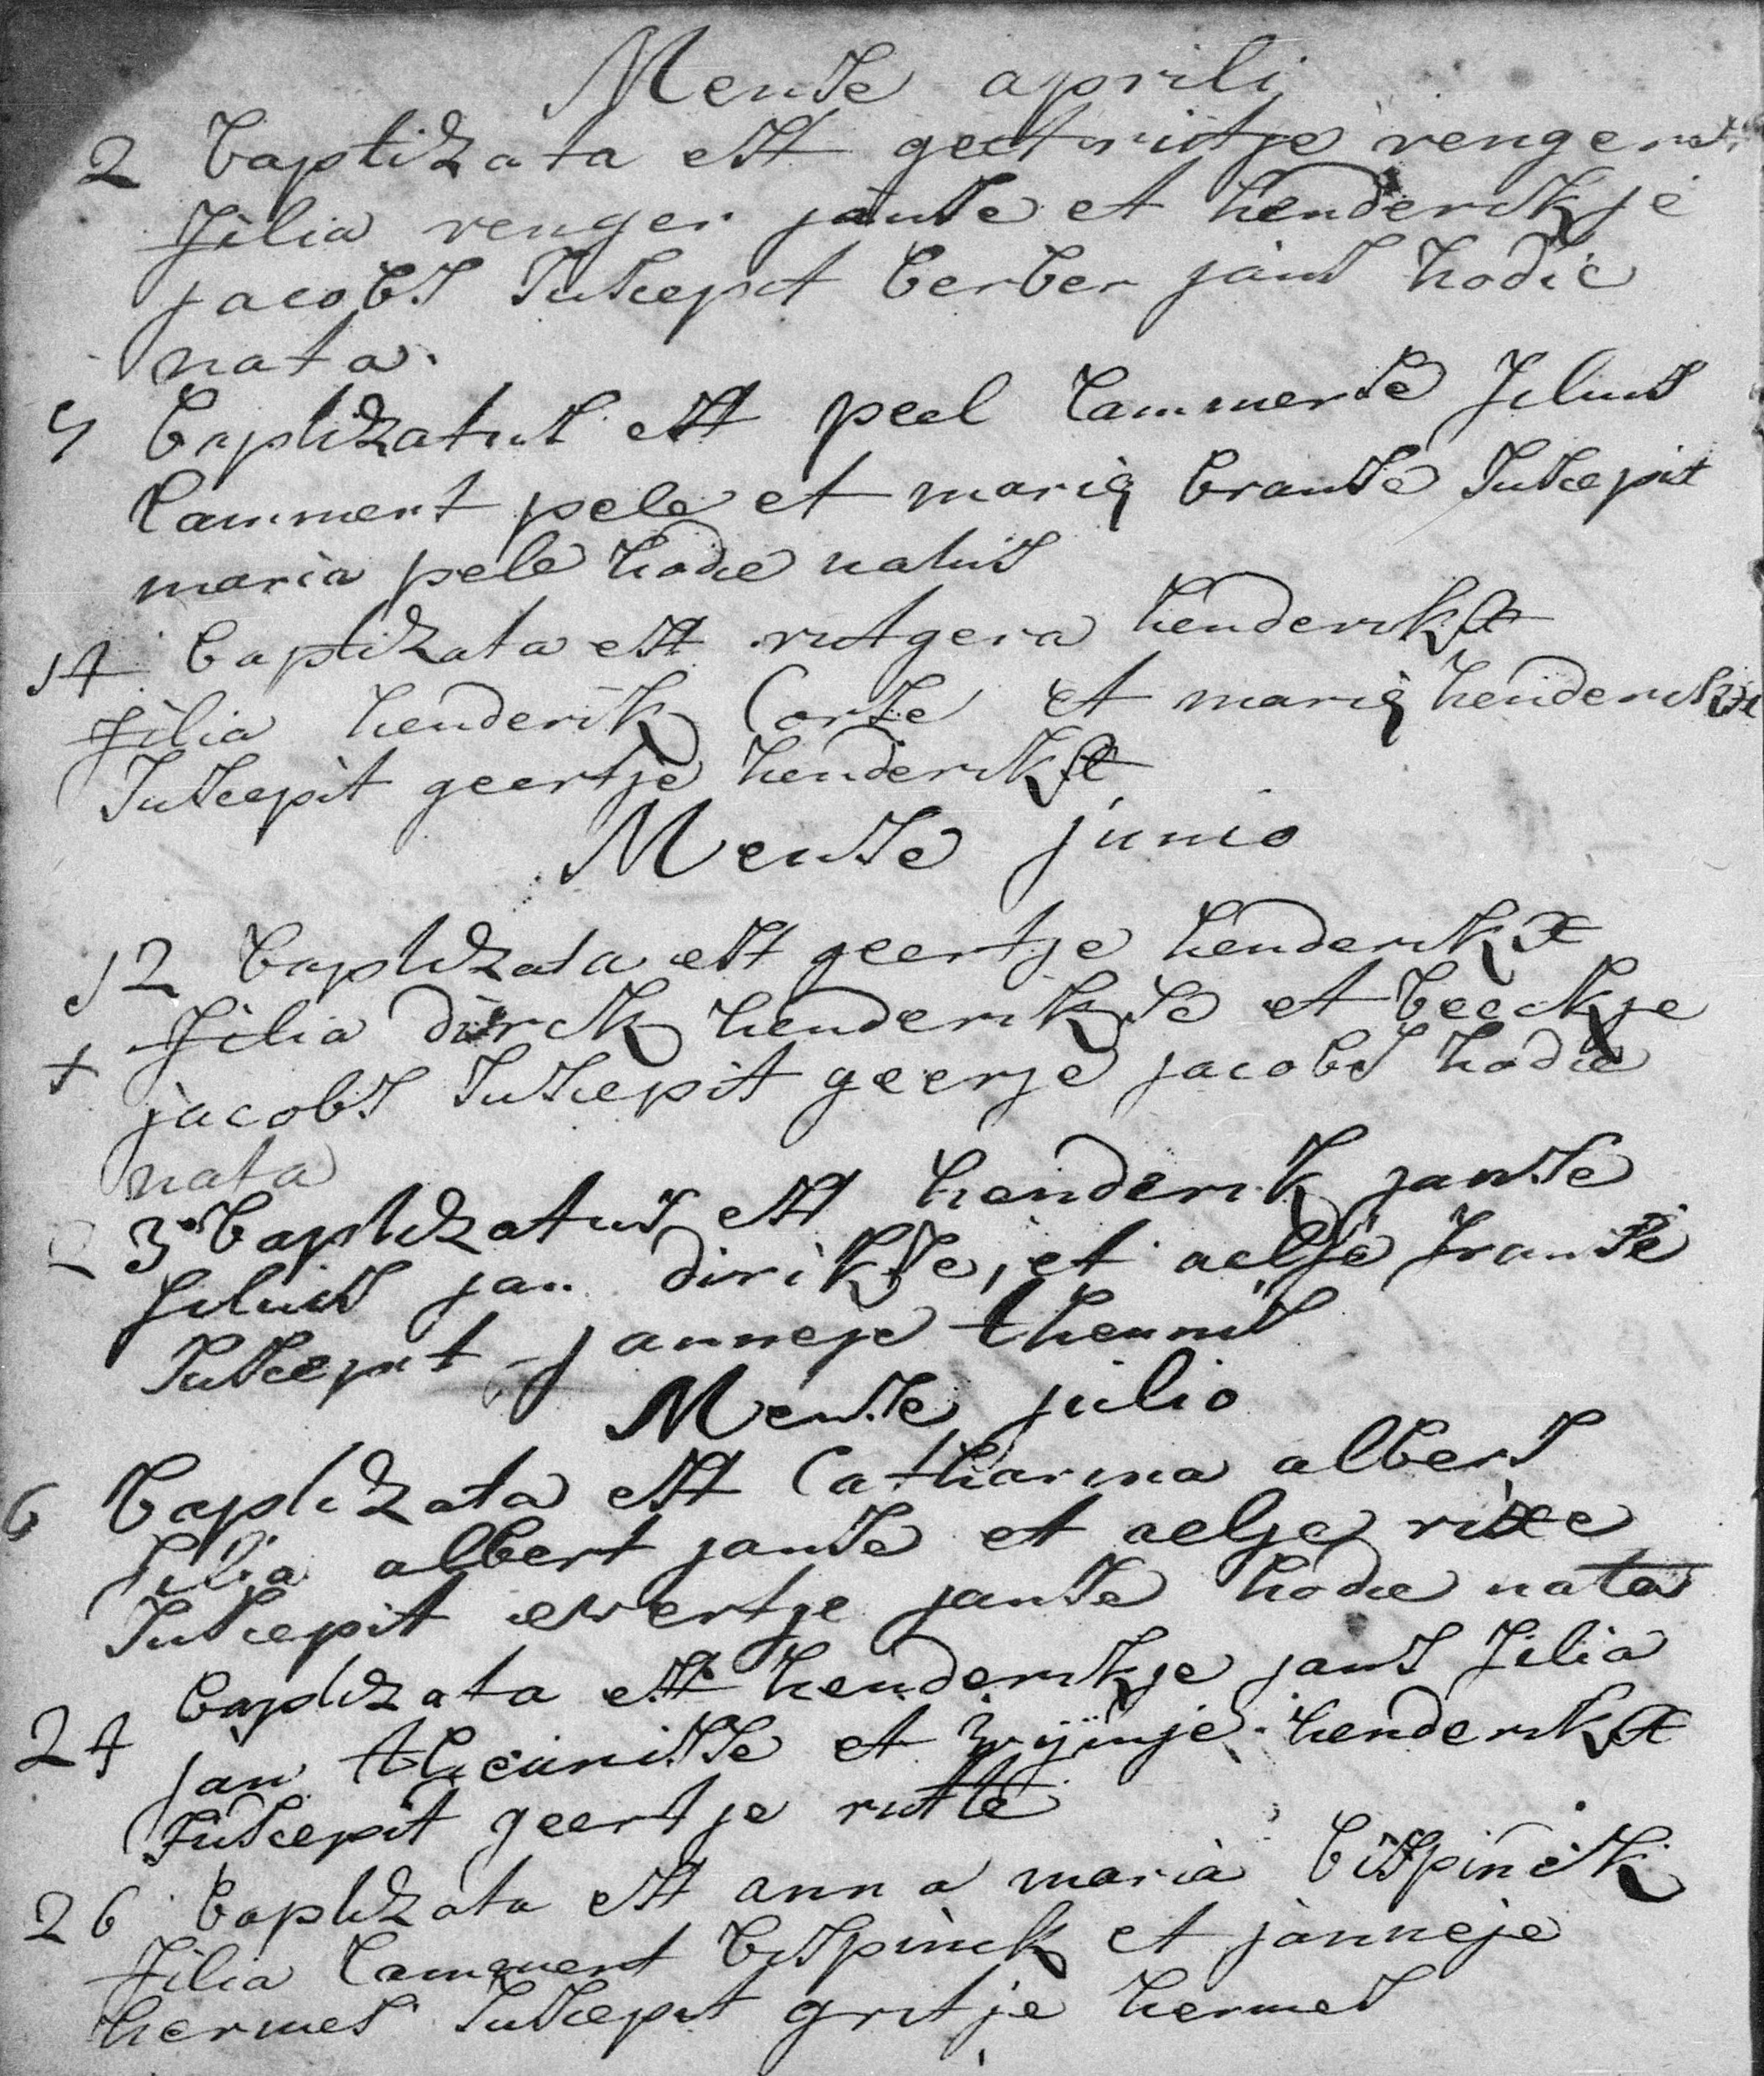 Mense aprili
2 baptizata est geetruitje rengers
filia renger janse et henderikje
jacobs suscepit berber jans hodie
nata.
5 baptizatus est peel lammerse filius
lammert pele et maria branse suscepit
maria pele hodie natus
14 baptizata est rutgera henderikx
filia henderik Corse et maria henderikx
suscepit geertje henderikx
Mense junio
12 baptizata est geertje henderikx
filia dirck henderikse et beeckje
+ jacobs suscepit geerje jacobs hodie
nata
23 baptizatus est henderik janse
filius jan dirikse, et aelje franse
suscepit janneje theunis
Mense julio
6 baptizata est Catharina albers
filia albert janse et aelje rixe
suscepit evertje janse hodie nata
24 baptizata est henderikje jans filia
jan theunisse et wijmje henderikx
suscepit geertje rutte
26 baptizata est anna maria bispinck
filia lammert bispinck et janneje
hermes suscepit gritje hermes